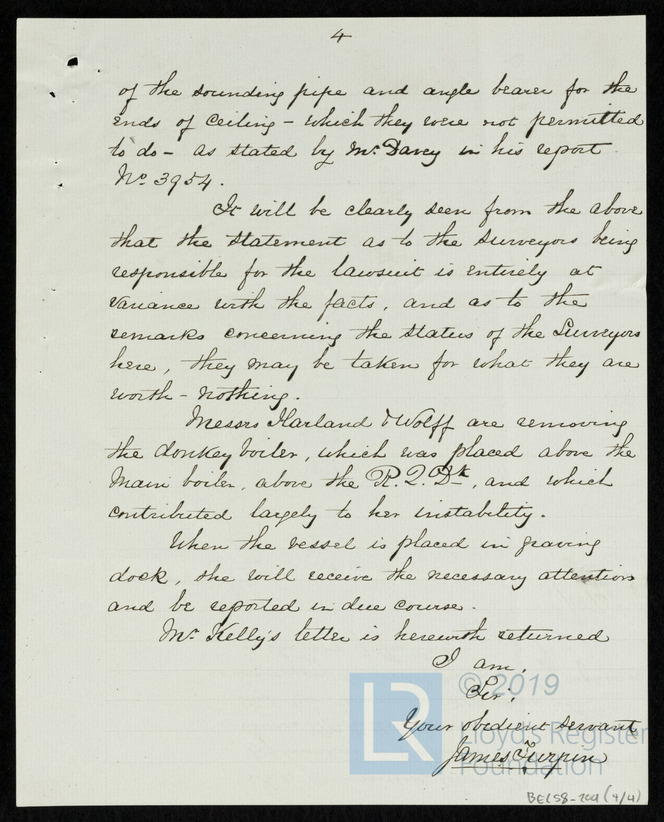 4
of the sounding pipe and angle bearer for the
ends of ceiling - which they were not permitted
to do - as stated by Mr. Davey in his report
No. 3954.
It will be clearly seen from the above
that the statement as to the surveyors being
responsible for the lawsuit is entirely at
variance with the facts, and as to the
remarks concerning the status of the Surveyors
here, they may be taken for what they are
worth - nothing.
Messrs Harland & Wolff are removing
the donkey boiler, which was placed above the
Main boiler, above the R. Q. Dk, and which
contributed largely to her instability.
When the vessel is placed in graving
dock, she will receive the necessary attention
and be reported in due course.
Mr. Kelly's letter is herewith returned
I am,
Sir,
Your obedient servant
James Turpin
LR
© 2019
Lloyd's Register
Foundation
BEL58-201 (4/4)